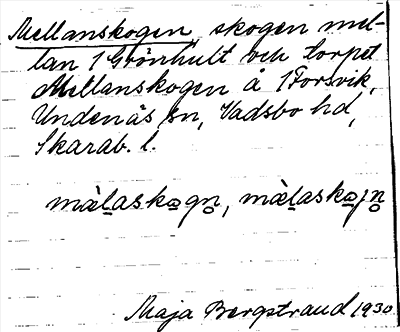 Mellanskogen, skogen mel-
lan 1 Grönhult och torpet
Mellanskogen å 1 Forsvik,
Undenäs sn, Vadsbo hd,
Skarab. l.
mälaskogn, mälaskojn
Maja Bergstrand 1930